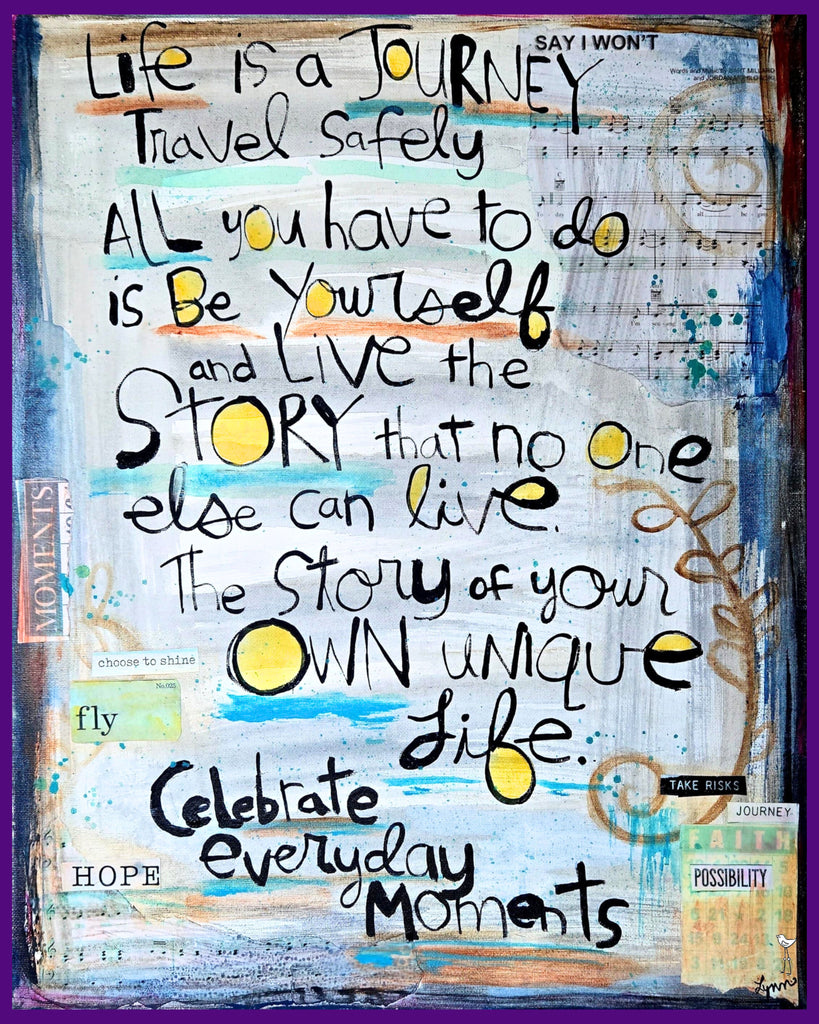 Life is a JOURNEY
SAY I WON'T
Travel Safely
ALL you have to do
is Be Yourself
and LIVE the
STORY that no one
else can live.
MOMENTS
The Story of your
OWN unique
Life.
choose to shine
No.025
fly
Celebrate
everyday
Moments
TAKE RISKS
JOURNEY
FAITH
HOPE
POSSIBILITY
Lynn